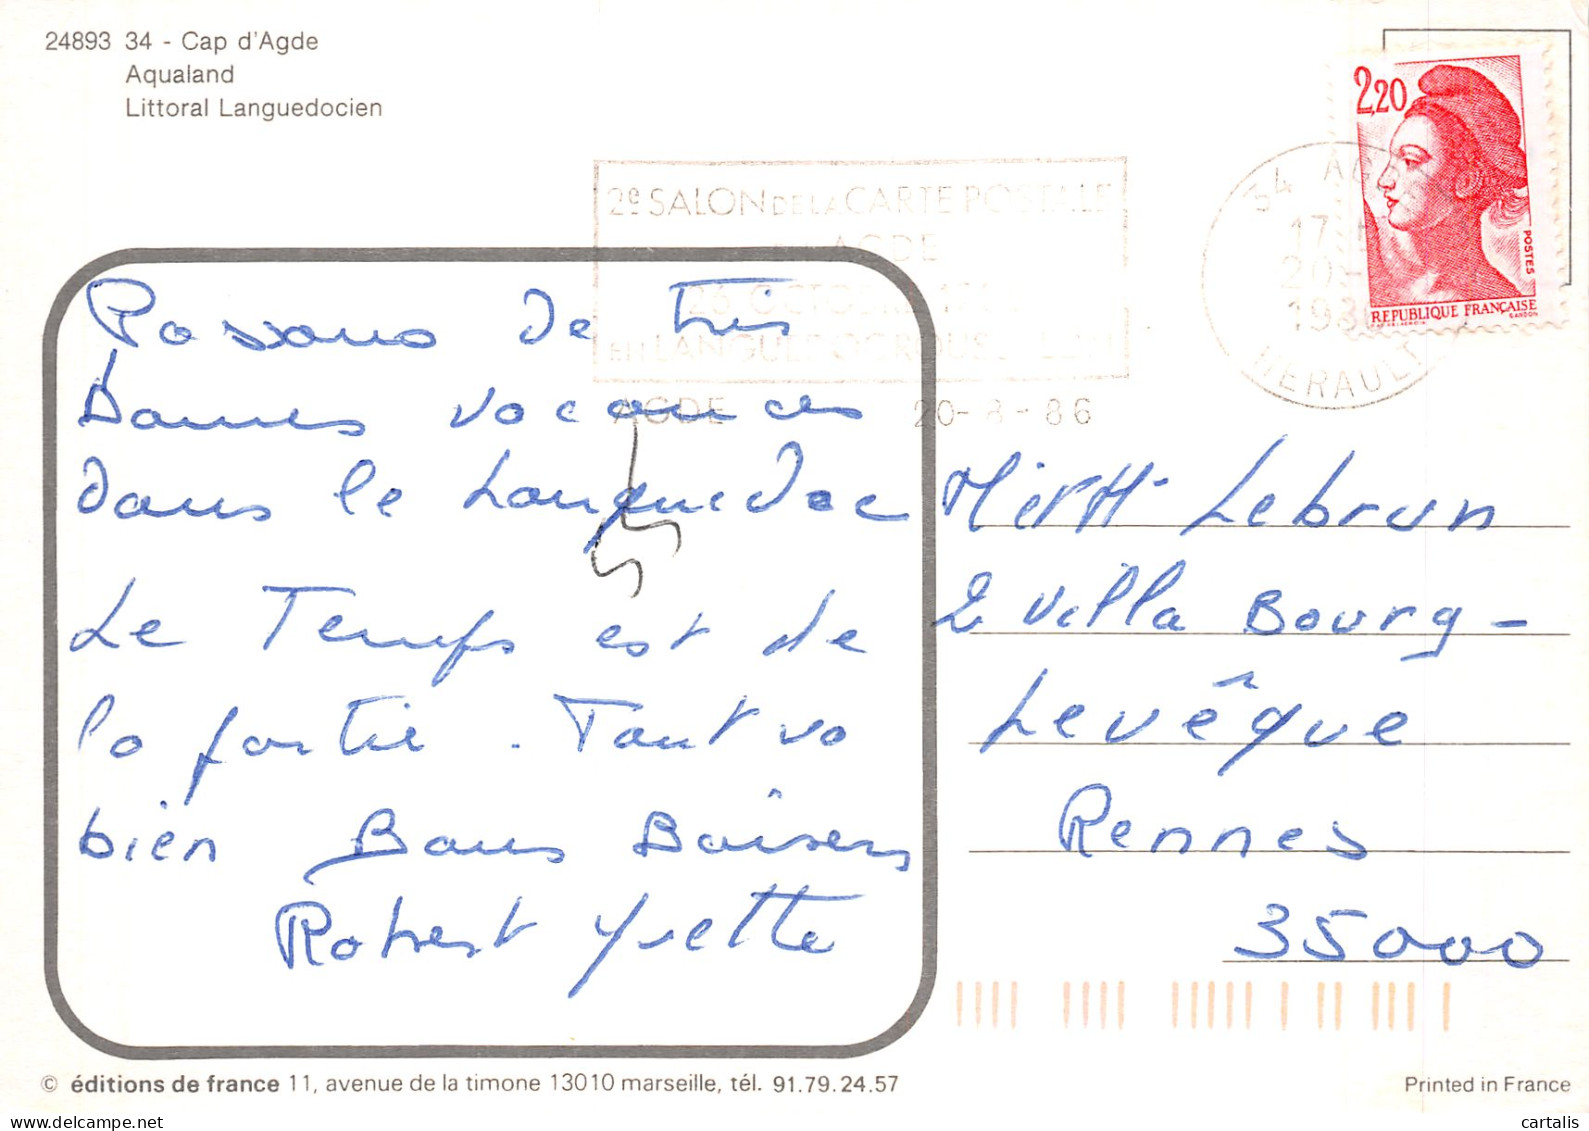 24893 34 - Cap d'Agde
Aqualand
Littoral Languedocien
2,20
POSTES
REPUBLIQUE FRANÇAISE
GANDON
2e SALON DE LA CARTE POSTALE
AGDE
26 OCTOBRE
EN LANGUEDOC ROUSSILLON
AGDE 20-8-86
34 AGDE
17 H
20-
198
HERAULT
Passons de très
bonnes vacances
dans le Languedoc
Le Temps est de
la partie. Tout va
bien Bons Baisers
Robert Yvette
Mr et Lebrun
2 Villa Bourg-
Levêque
Rennes
35000
© éditions de france 11, avenue de la timone 13010 marseille, tél. 91.79.24.57
Printed in France
cartalis